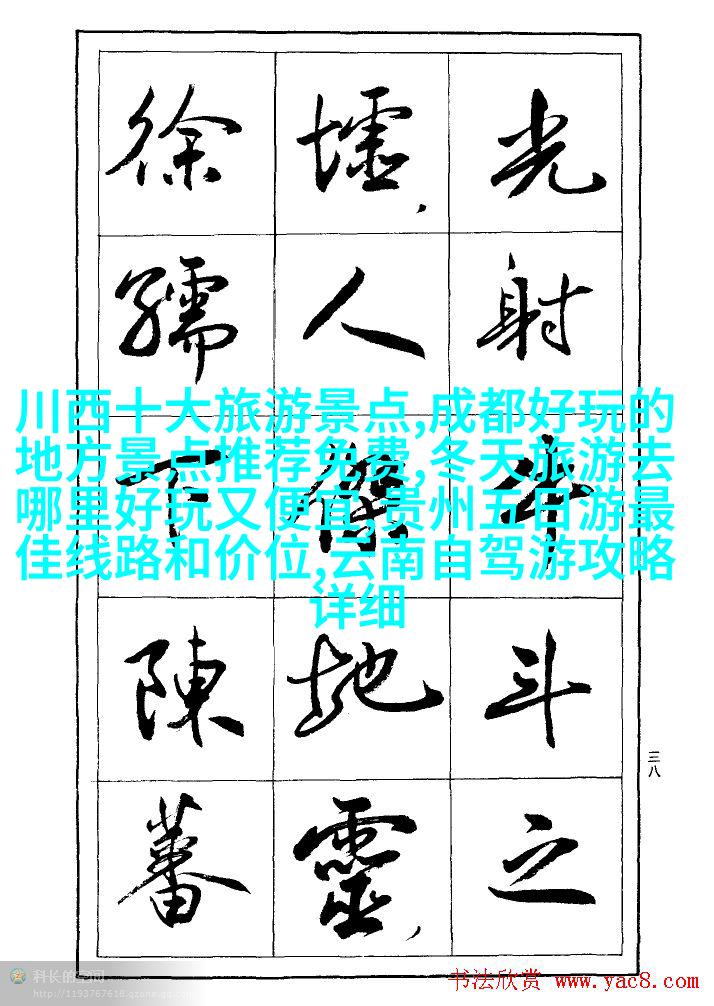 光射牛斗之
墟,人傑地靈,
徐孺下陳蕃
川西十大旅游景点,成都好玩的
地方景点推荐免费,冬天旅游去
哪里好玩又便宜,贵州五日游最
佳线路和价位,云南自驾游攻略
详细
三八
科长的空间
http://1193767618.qzone.qq.com
书法欣赏 www.yac8.com